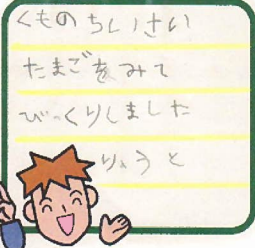 くものちいさい
たまごをみて
びっくりしました
りょうと